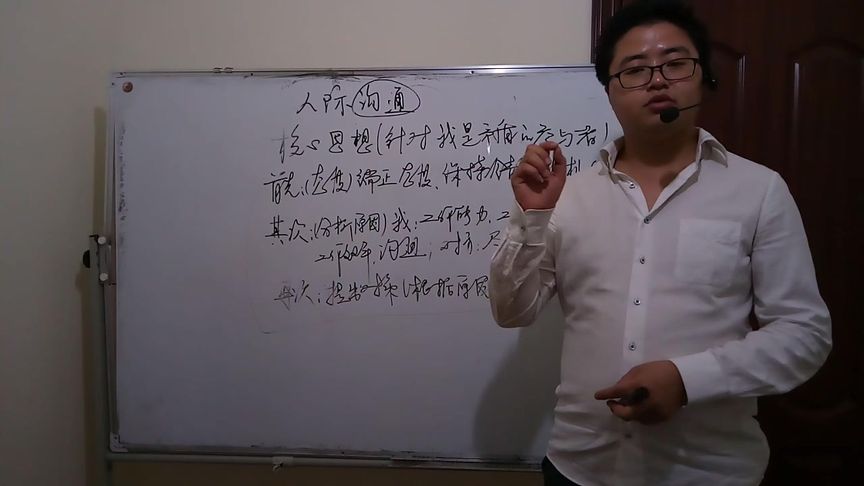 人际沟通
核心思想(针对我是矛盾的参与者)
首先:(态度)端正态度、保持
其次:(分析原因)我:工作能力,工
工作中沟通;对方:
再次:提出对策(根据原因